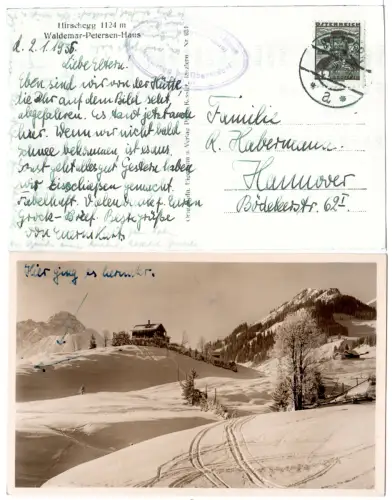 Hirschegg 1124 m
Waldemar-Petersen-Haus
d. 2.1.1936.
Liebe Eltern.
Eben sind wir von der Hütte
die Ihr auf dem Bild seht,
abgefahren. Es taut jetzt auch
hier. Wenn wir nicht bald
Schnee bekommen, ist es aus.
Sonst geht alles gut. Gestern haben
wir
gemacht.
Fabelhaft. Vielen Dank f. Euren
Brief. Beste Grüße
von Eurem Kurt.
ÖSTERREICH
a
Familie
A. Habermann.
Hannover
Bödekerstr. 62 I.
Hier ging es herunter.